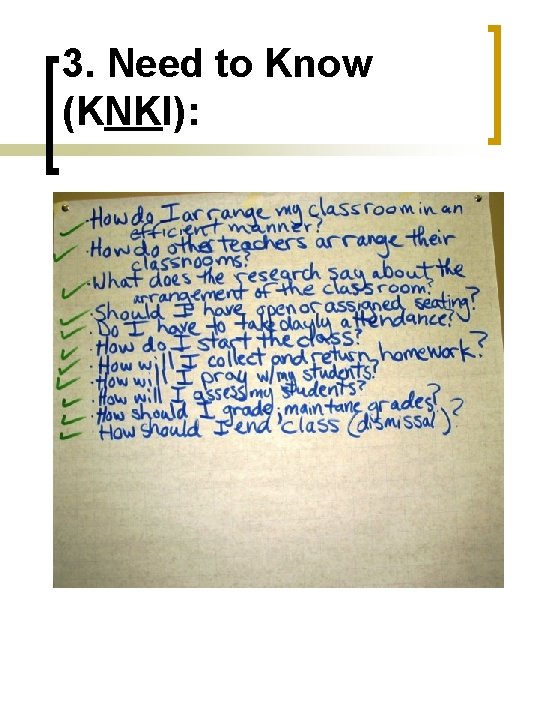 3. Need to Know
(KNKI):
·How do I arrange my classroom in an
efficient manner?
·How do other teachers arrange their
classrooms?
·What does the research say about the
arrangement of the classroom?
·Should I have open or assigned seating?
·Do I have to take dayly attendance?
·How do I start the class?
·How will I collect and return homework?
·How will I pray w/my students?
·How will I assess my students?
·How should I grade, maintane grades?
·How should I end class (dismissal)?